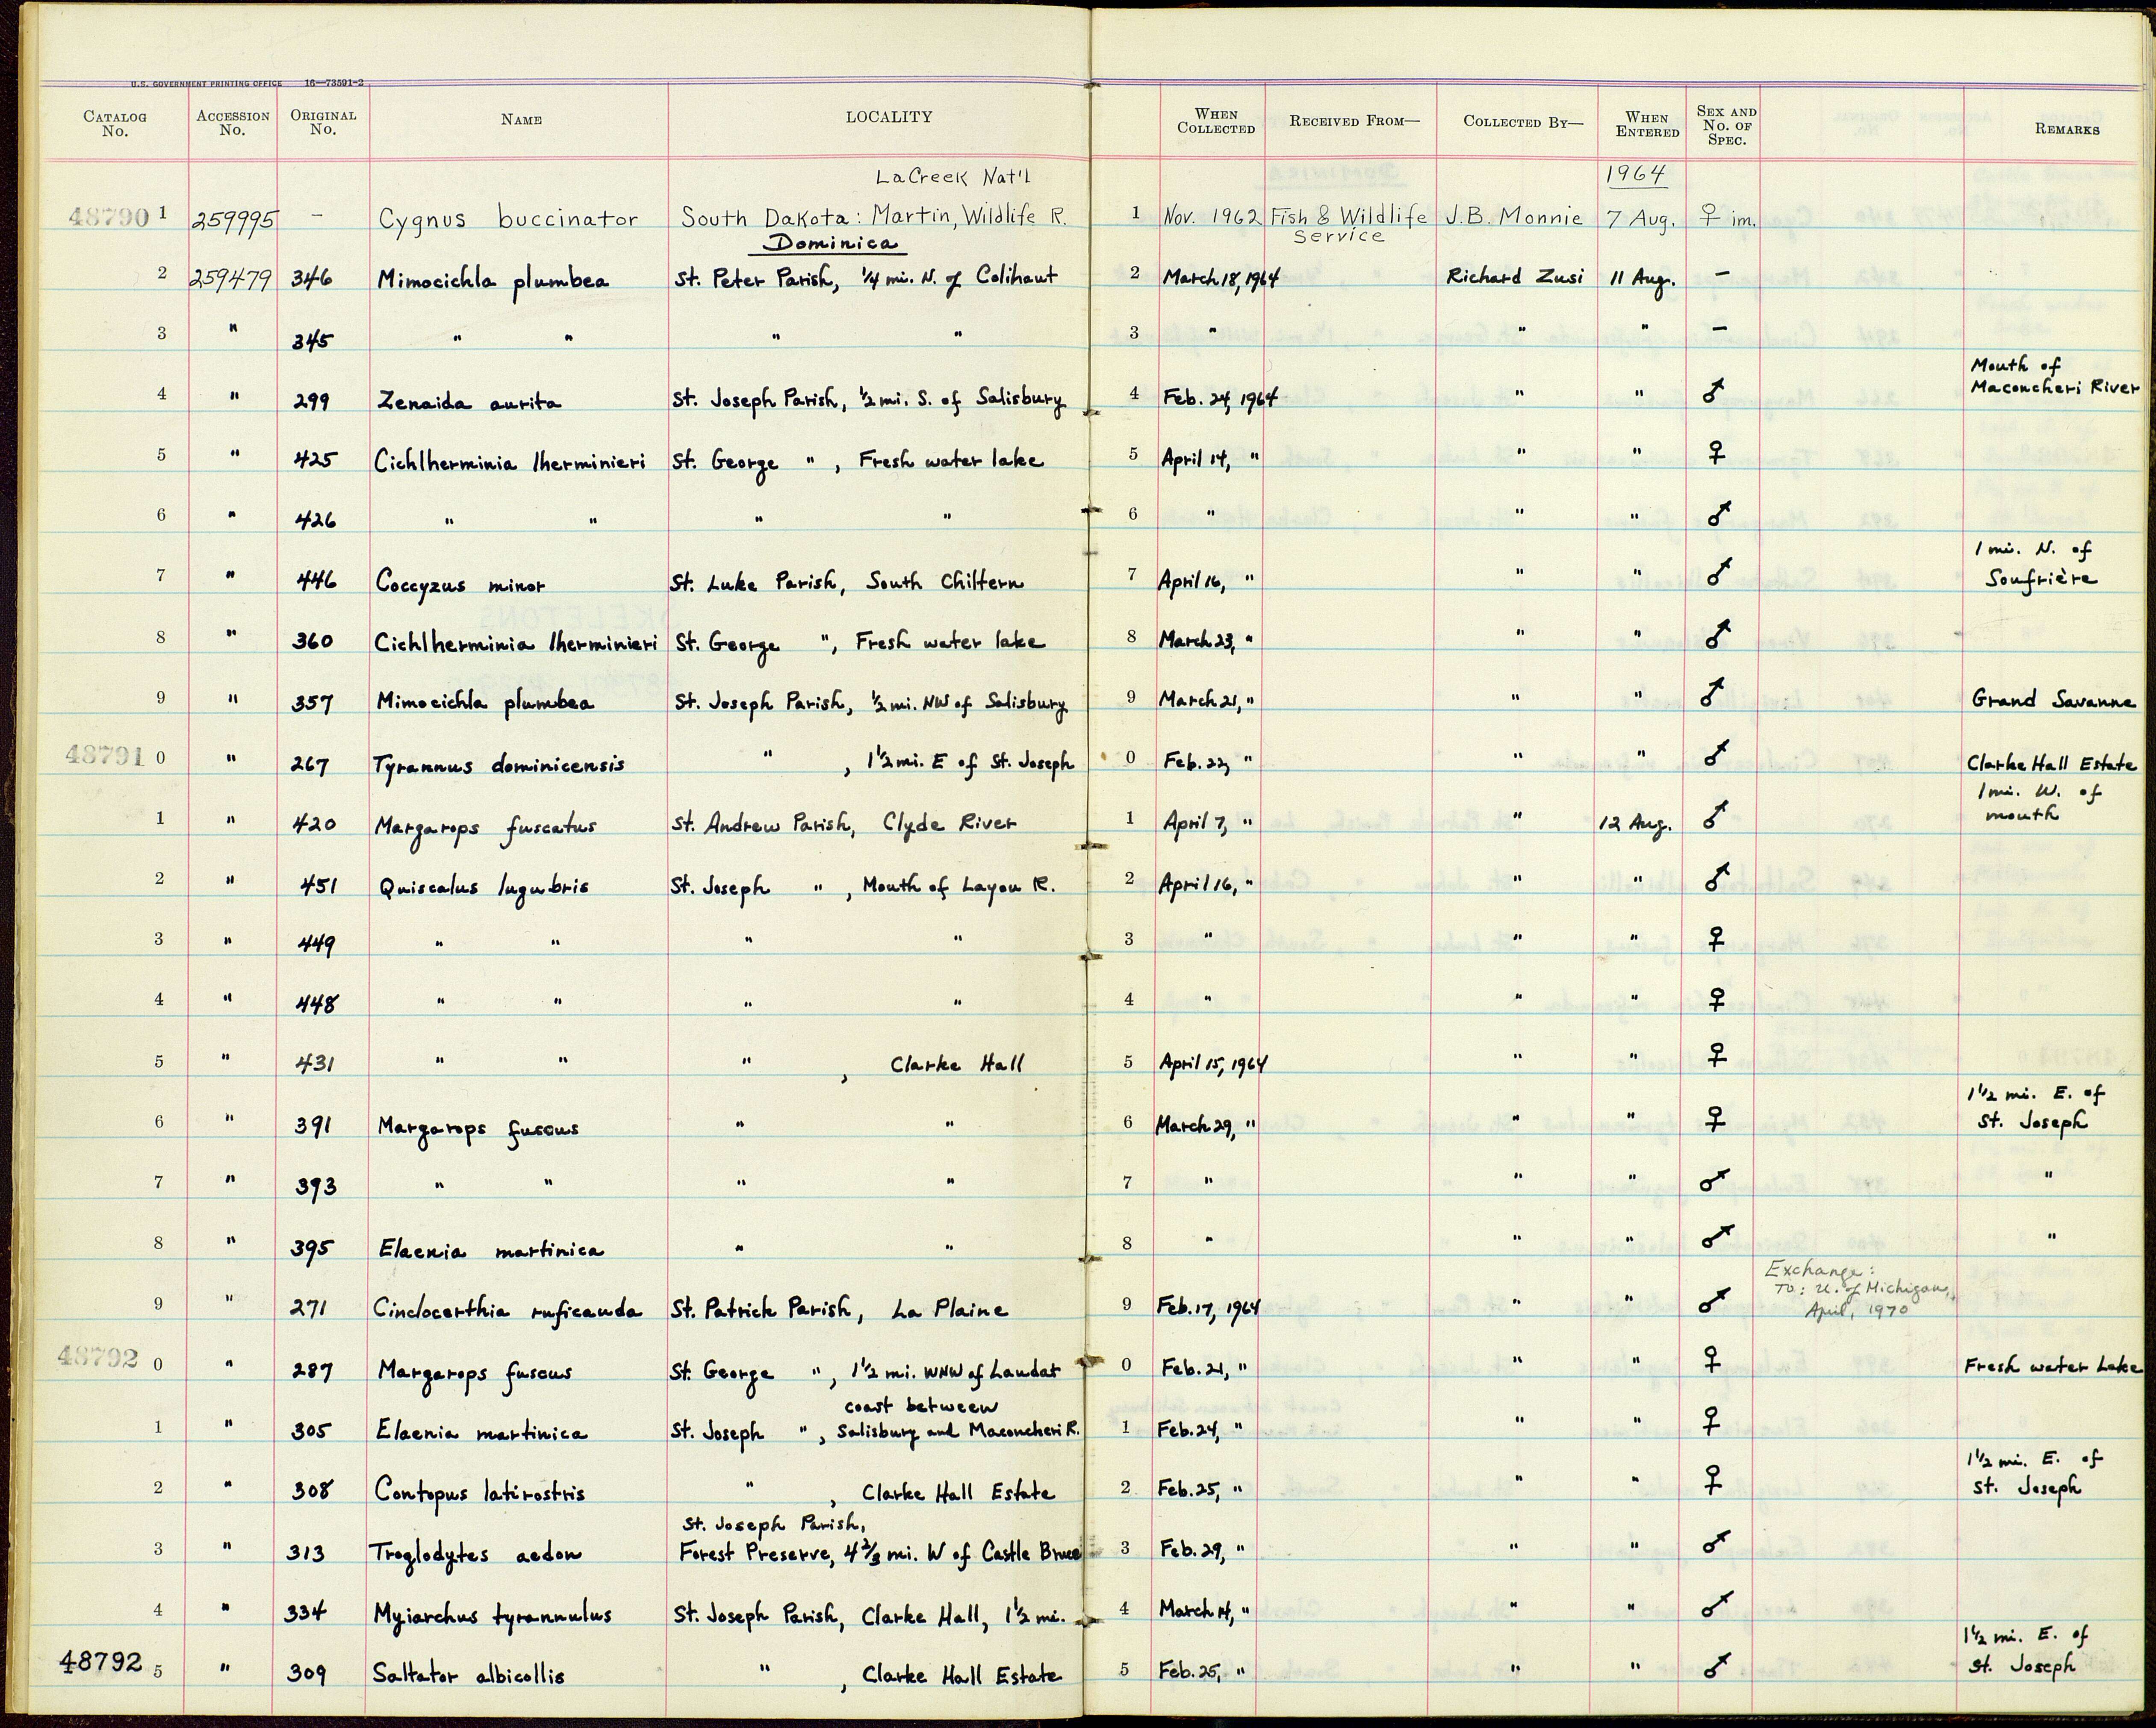 U.S. GOVERNMENT PRINTING OFFICE 16—73591-2
CATALOG No. ACCESSION No. ORIGINAL No. NAME LOCALITY WHEN COLLECTED RECEIVED FROM— COLLECTED BY— WHEN ENTERED SEX AND No. OF SPEC. REMARKS
LaCreek Nat'l 1964
48790 1 259995 – Cygnus buccinator South Dakota: Martin, Wildlife R. 1 Nov. 1962 Fish & Wildlife Service J.B. Monnie 7 Aug. ♀ im.
Dominica
2 259479 346 Mimocichla plumbea St. Peter Parish, 1/4 mi. N. of Colihaut 2 March 18, 1964 Richard Zusi 11 Aug. –
3 " 345 " " " " 3 " " " –
4 " 299 Zenaida aurita St. Joseph Parish, 1/2 mi. S. of Salisbury 4 Feb. 24, 1964 " " ♂ Mouth of Maconcheri River
5 " 425 Cichlherminia lherminieri St. George " , Fresh water lake 5 April 14, " " " ♀
6 " 426 " " " " 6 " " " ♂
7 " 446 Coccyzus minor St. Luke Parish, South Chiltern 7 April 16, " " " ♂ 1 mi. N. of Soufrière
8 " 360 Cichlherminia lherminieri St. George ", Fresh water lake 8 March 23, " " " ♂
9 " 357 Mimocichla plumbea St. Joseph Parish, 1/2 mi. NW of Salisbury 9 March 21, " " " ♂ Grand Savanne
48791 0 " 267 Tyrannus dominicensis " , 1 1/2 mi. E of St. Joseph 0 Feb. 22, " " " ♂ Clarke Hall Estate
1 " 420 Margarops fuscatus St. Andrew Parish, Clyde River 1 April 7, " " 12 Aug. ♂ 1 mi. W. of mouth
2 " 451 Quiscalus lugubris St. Joseph " , Mouth of Layou R. 2 April 16, " " " ♂
3 " 449 " " " " 3 " " " ♀
4 " 448 " " " " 4 " " " ♀
5 " 431 " " " , Clarke Hall 5 April 15, 1964 " " ♀
6 " 391 Margarops fuscus " " 6 March 29, " " " ♀ 1 1/2 mi. E. of St. Joseph
7 " 393 " " " " 7 " " " ♂ "
8 " 395 Elaenia martinica " " 8 " " " ♂ "
9 " 271 Cinclocerthia ruficauda St. Patrick Parish, La Plaine 9 Feb. 17, 1964 " " ♂ Exchange: To: U. of Michigan, April, 1970
48792 0 " 287 Margarops fuscus St. George " , 1 1/2 mi. WNW of Laudat 0 Feb. 21, " " " ♀ Fresh water Lake
coast between
1 " 305 Elaenia martinica St. Joseph " , Salisbury and Maconcheri R. 1 Feb. 24, " " " ♀
2 " 308 Contopus latirostris " , Clarke Hall Estate 2 Feb. 25, " " " ♀ 1 1/2 mi. E. of St. Joseph
St. Joseph Parish,
3 " 313 Troglodytes aedon Forest Preserve, 4 2/3 mi. W of Castle Bruce 3 Feb. 29, " " " ♂
4 " 334 Myiarchus tyrannulus St. Joseph Parish, Clarke Hall, 1 1/2 mi. 4 March 14, " " " ♂
48792 5 " 309 Saltator albicollis " , Clarke Hall Estate 5 Feb. 25, " " " ♂ 1 1/2 mi. E. of St. Joseph